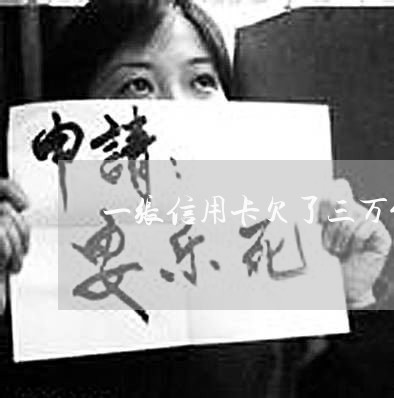 申請：
一张信用卡欠了三万
安乐死